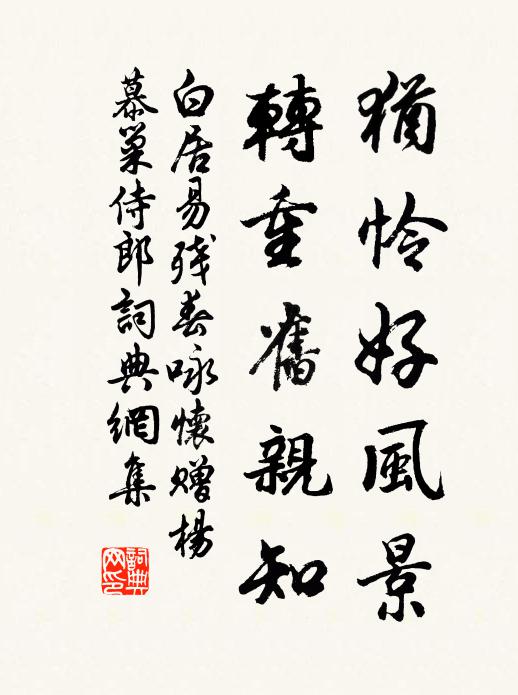 猶怜好風景
轉重舊親知
白居易殘春咏懷贈楊
慕巢侍郎詞典網集
詞典网印